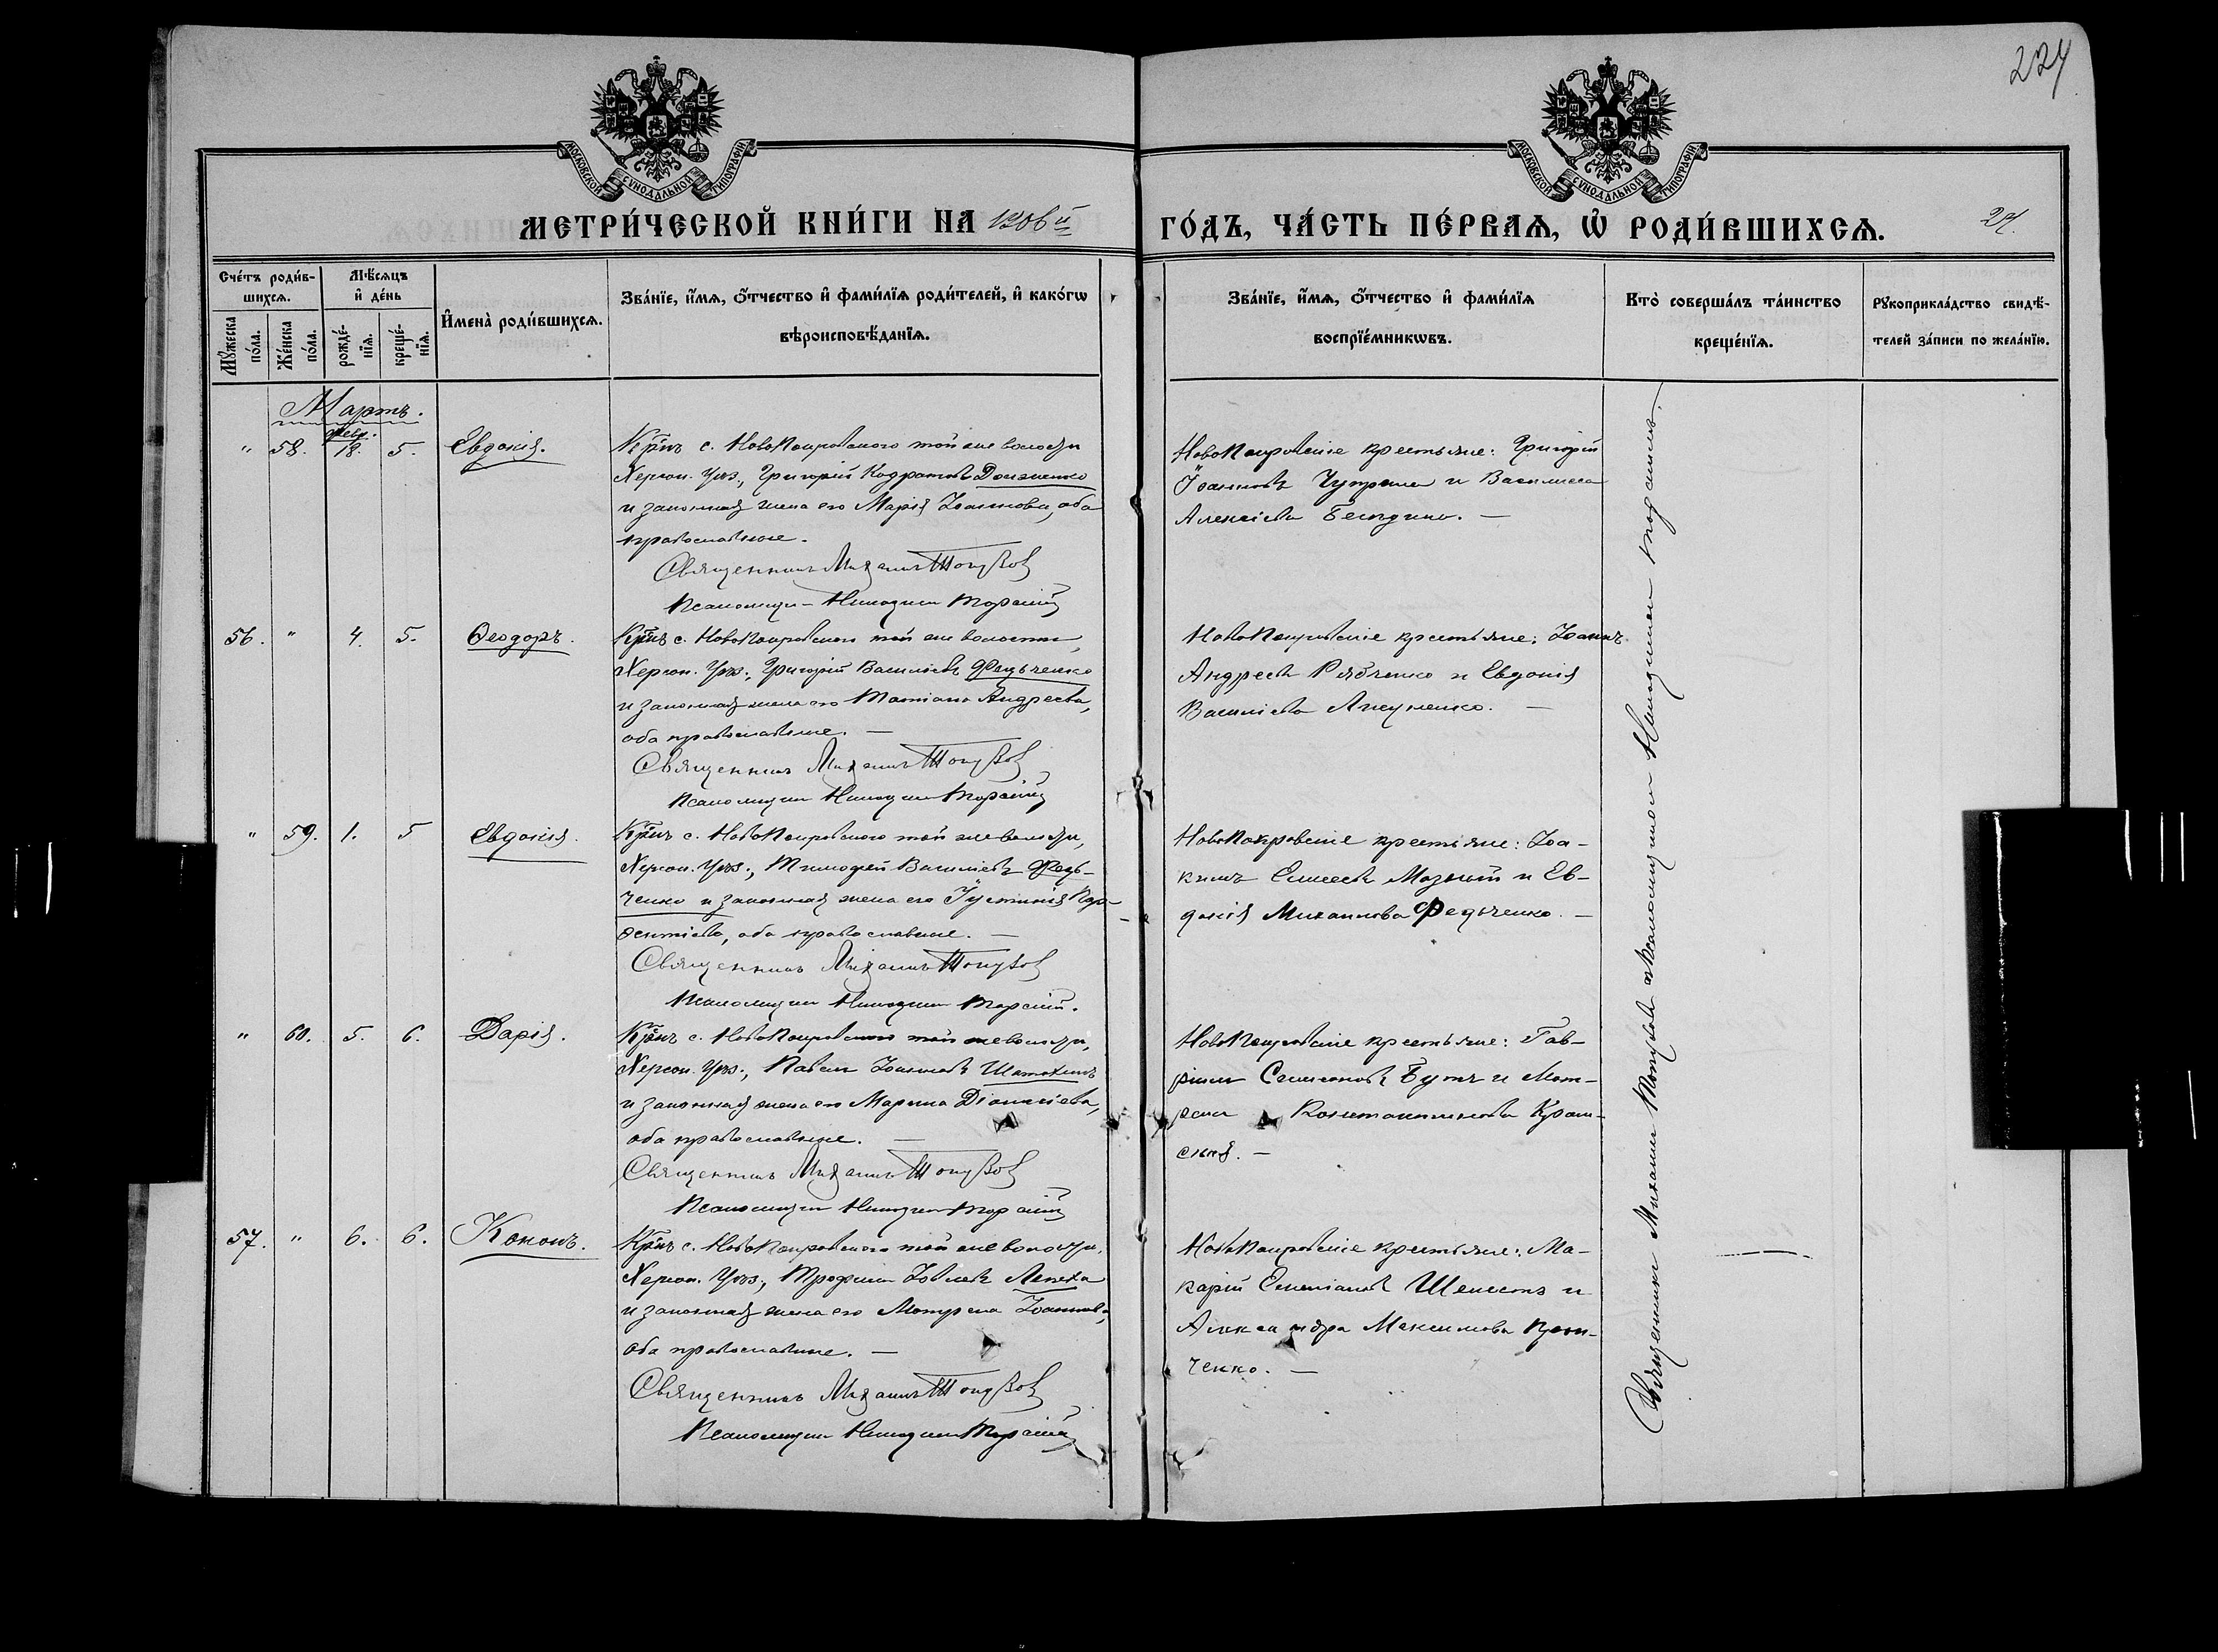 224
МОСКОВСКОЙ СѴНОДАЛЬНОЙ ТИПОГРАФІИ
МОСКОВСКОЙ СѴНОДАЛЬНОЙ ТИПОГРАФІИ
МЕТРИ́ЧЕСКОЙ КНИ́ГИ НА 1906й
ГО́ДЪ, ЧА́СТЬ ПЕ́РВАѦ, Ѽ РОДИ́ВШИХСѦ.
Сче́тъ роди́в-
шихсѧ.
Мꙋ́жеска по́ла.
Же́нска по́ла.
Мѣ́сѧцъ
и҆ де́нь
рожде́-нїѧ.
креще́-нїѧ.
И҆мена̀ роди́вшихсѧ.
Зва́нїе, и҆́мѧ, ѻ҆́тчество и҆ фами́лїѧ роди́телей, и҆ како́гѡ
вѣроисповѣ́данїѧ.
Зва́нїе, и҆́мѧ, ѻ҆́тчество и҆ фами́лїѧ
воспрїе́мникѡвъ.
Кто̀ соверша́лъ та́инство
креще́нїѧ.
Рꙋкоприкла́дство свидѣ́-
телей за́писи по жела́нїю.
Мартъ.
февр.
" 58. 18. 5. Евдокія.
Крнъ с. НовоПокровского той же волости
Херсон. Уѣз., Григорій Кодратовъ
и законная жена его Марія Іоаннова, оба
православные.
Священникъ Михаилъ
Псаломщикъ Никодим
НовоПокровскіе крестьяне: Григорій
Іоанновъ Чуприна и Василиса
Алексіева
56. " 4. 5. Ѳеодоръ.
Крнъ с. НовоПокровского той же волости,
Херсон. Уѣз., Григорій Василіевъ Федьченко
и законная жена его Татіана Андреева,
оба православные. —
Священникъ Михаилъ
Псаломщикъ Никодим
НовоПокровскіе крестьяне: Іоаннъ
Андреевъ Рябченко и Евдокія
Василіева
" 59. 1. 5 Евдокія.
Крнъ с. НовоПокровского той же волости,
Херсон. Уѣз., Тимофей Василіевъ Федь-
ченко и законная жена его Іустинія
оба православные. —
Священникъ Михаилъ
Псаломщикъ Никодим
НовоПокровскіе крестьяне: Іоа-
кимъ Елисеевъ Мазный и Ев-
докія Михаилова Федьченко. —
" 60. 5. 6. Дарія.
Крнъ с. НовоПокровского той же волости,
Херсон. Уѣз., Павелъ Іоанновъ
и законная жена его Марина Діонисіева,
оба православные. —
Священникъ Михаилъ
Псаломщикъ Никодим
НовоПокровскіе крестьяне: Гав-
ріилъ Симеоновъ Бутъ и Мот-
рона Константинова
57. " 6. 6. Кононъ.
Крнъ с. НовоПокровского той же волости,
Херсон. Уѣз., Трофимъ Іовлевъ Лепеха
и законная жена его Мотрона Іоаннова,
оба православные. —
Священникъ Михаилъ
Псаломщикъ Никодим
НовоПокровскіе крестьяне: Ма-
карій Емеліановъ Шелестъ и
Александра Максимова
ченко. —
Священникъ Михаилъ съ псаломщикомъ Никодимомъ